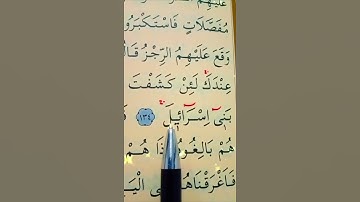 عَلَيْهِمُ
مُفَصَّلَاتٍ فَاسْتَكْبَرُوا
وَقَعَ عَلَيْهِمُ الرِّجْزُ قَالُ
عِنْدَكَ لَئِنْ كَشَفْتَ
بَنٖٓى اِسْرَٓائٖيلَ ﴿١٣٤﴾ فَ
هُمْ بَالِغُوهُ اِذَا هُمْ
فَاَغْرَقْنَاهُمْ فِى الْيَ